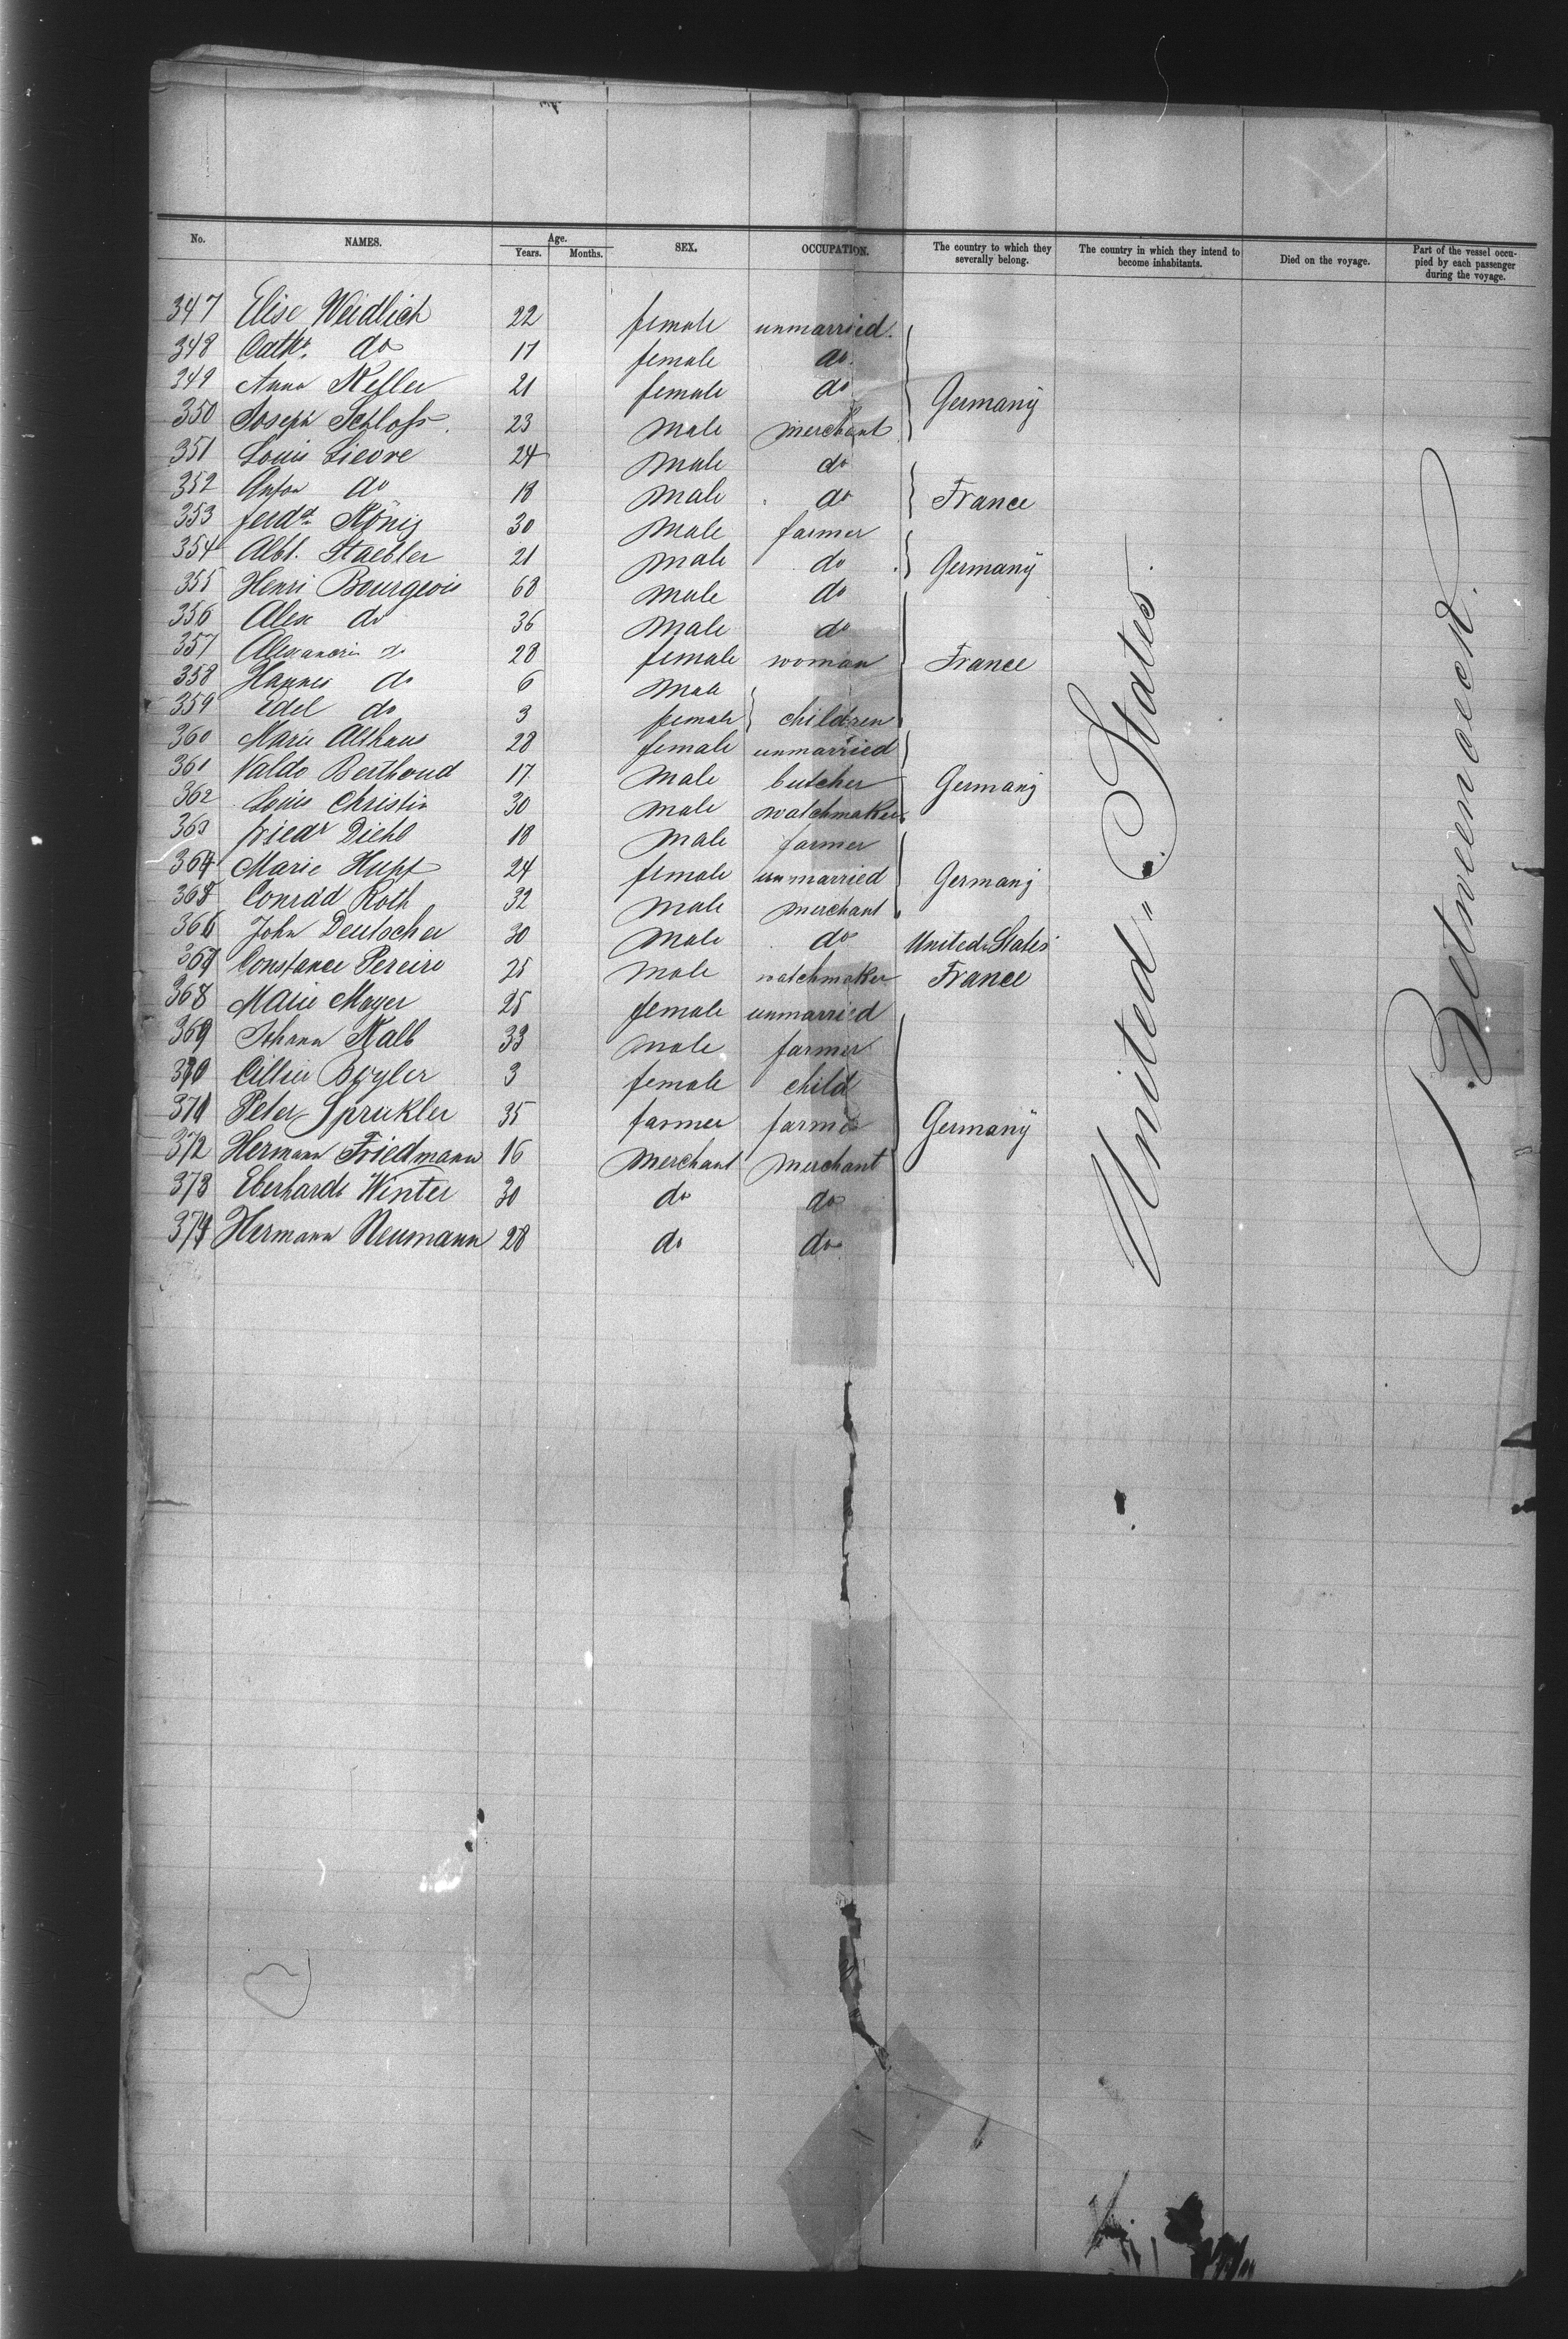 No. NAMES. Age. Years. Months. SEX. OCCUPATION. The country to which they severally belong. The country in which they intend to become inhabitants. Died on the voyage. Part of the vessel occupied by each passenger during the voyage.
347 Elise Weidlich 22 female unmarried
348 Cathr. do 17 female do
349 Anna Keller 21 female do Germany
350 Joseph Schloss 23 male merchant
351 Louis Lievre 24 male do
352 Anton do 18 male do France
353 Ferdd. König 30 male farmer
354 Albt. Staebler 21 male do Germany
355 Henri Bourgeois 68 male do
356 Alex do 36 male do
357 Alexandrin do 28 female woman France
358 Hannes do 6 male
359 Edel do 3 female children
360 Marie Althaus 28 female unmarried
361 Valdo Berthoud 17 male butcher Germany
362 Louis Christin 30 male watchmaker
363 Friedr Diehl 18 male farmer
364 Marie Hupf 24 female unmarried Germany
365 Conrad Roth 32 male merchant
366 John Deutscher 30 male do United States
367 Constance Pereire 25 male watchmaker France
368 Marie Mayer 25 female unmarried
369 Johann Kalb 33 male farmer
370 Cillie Beyler 3 female child
371 Peter Sprukler 35 farmer farmer Germany
372 Hermann Friedmann 16 merchant merchant
373 Eberhardt Winter 30 do do
374 Hermann Neumann 28 do do
United States.
Betweendeck.